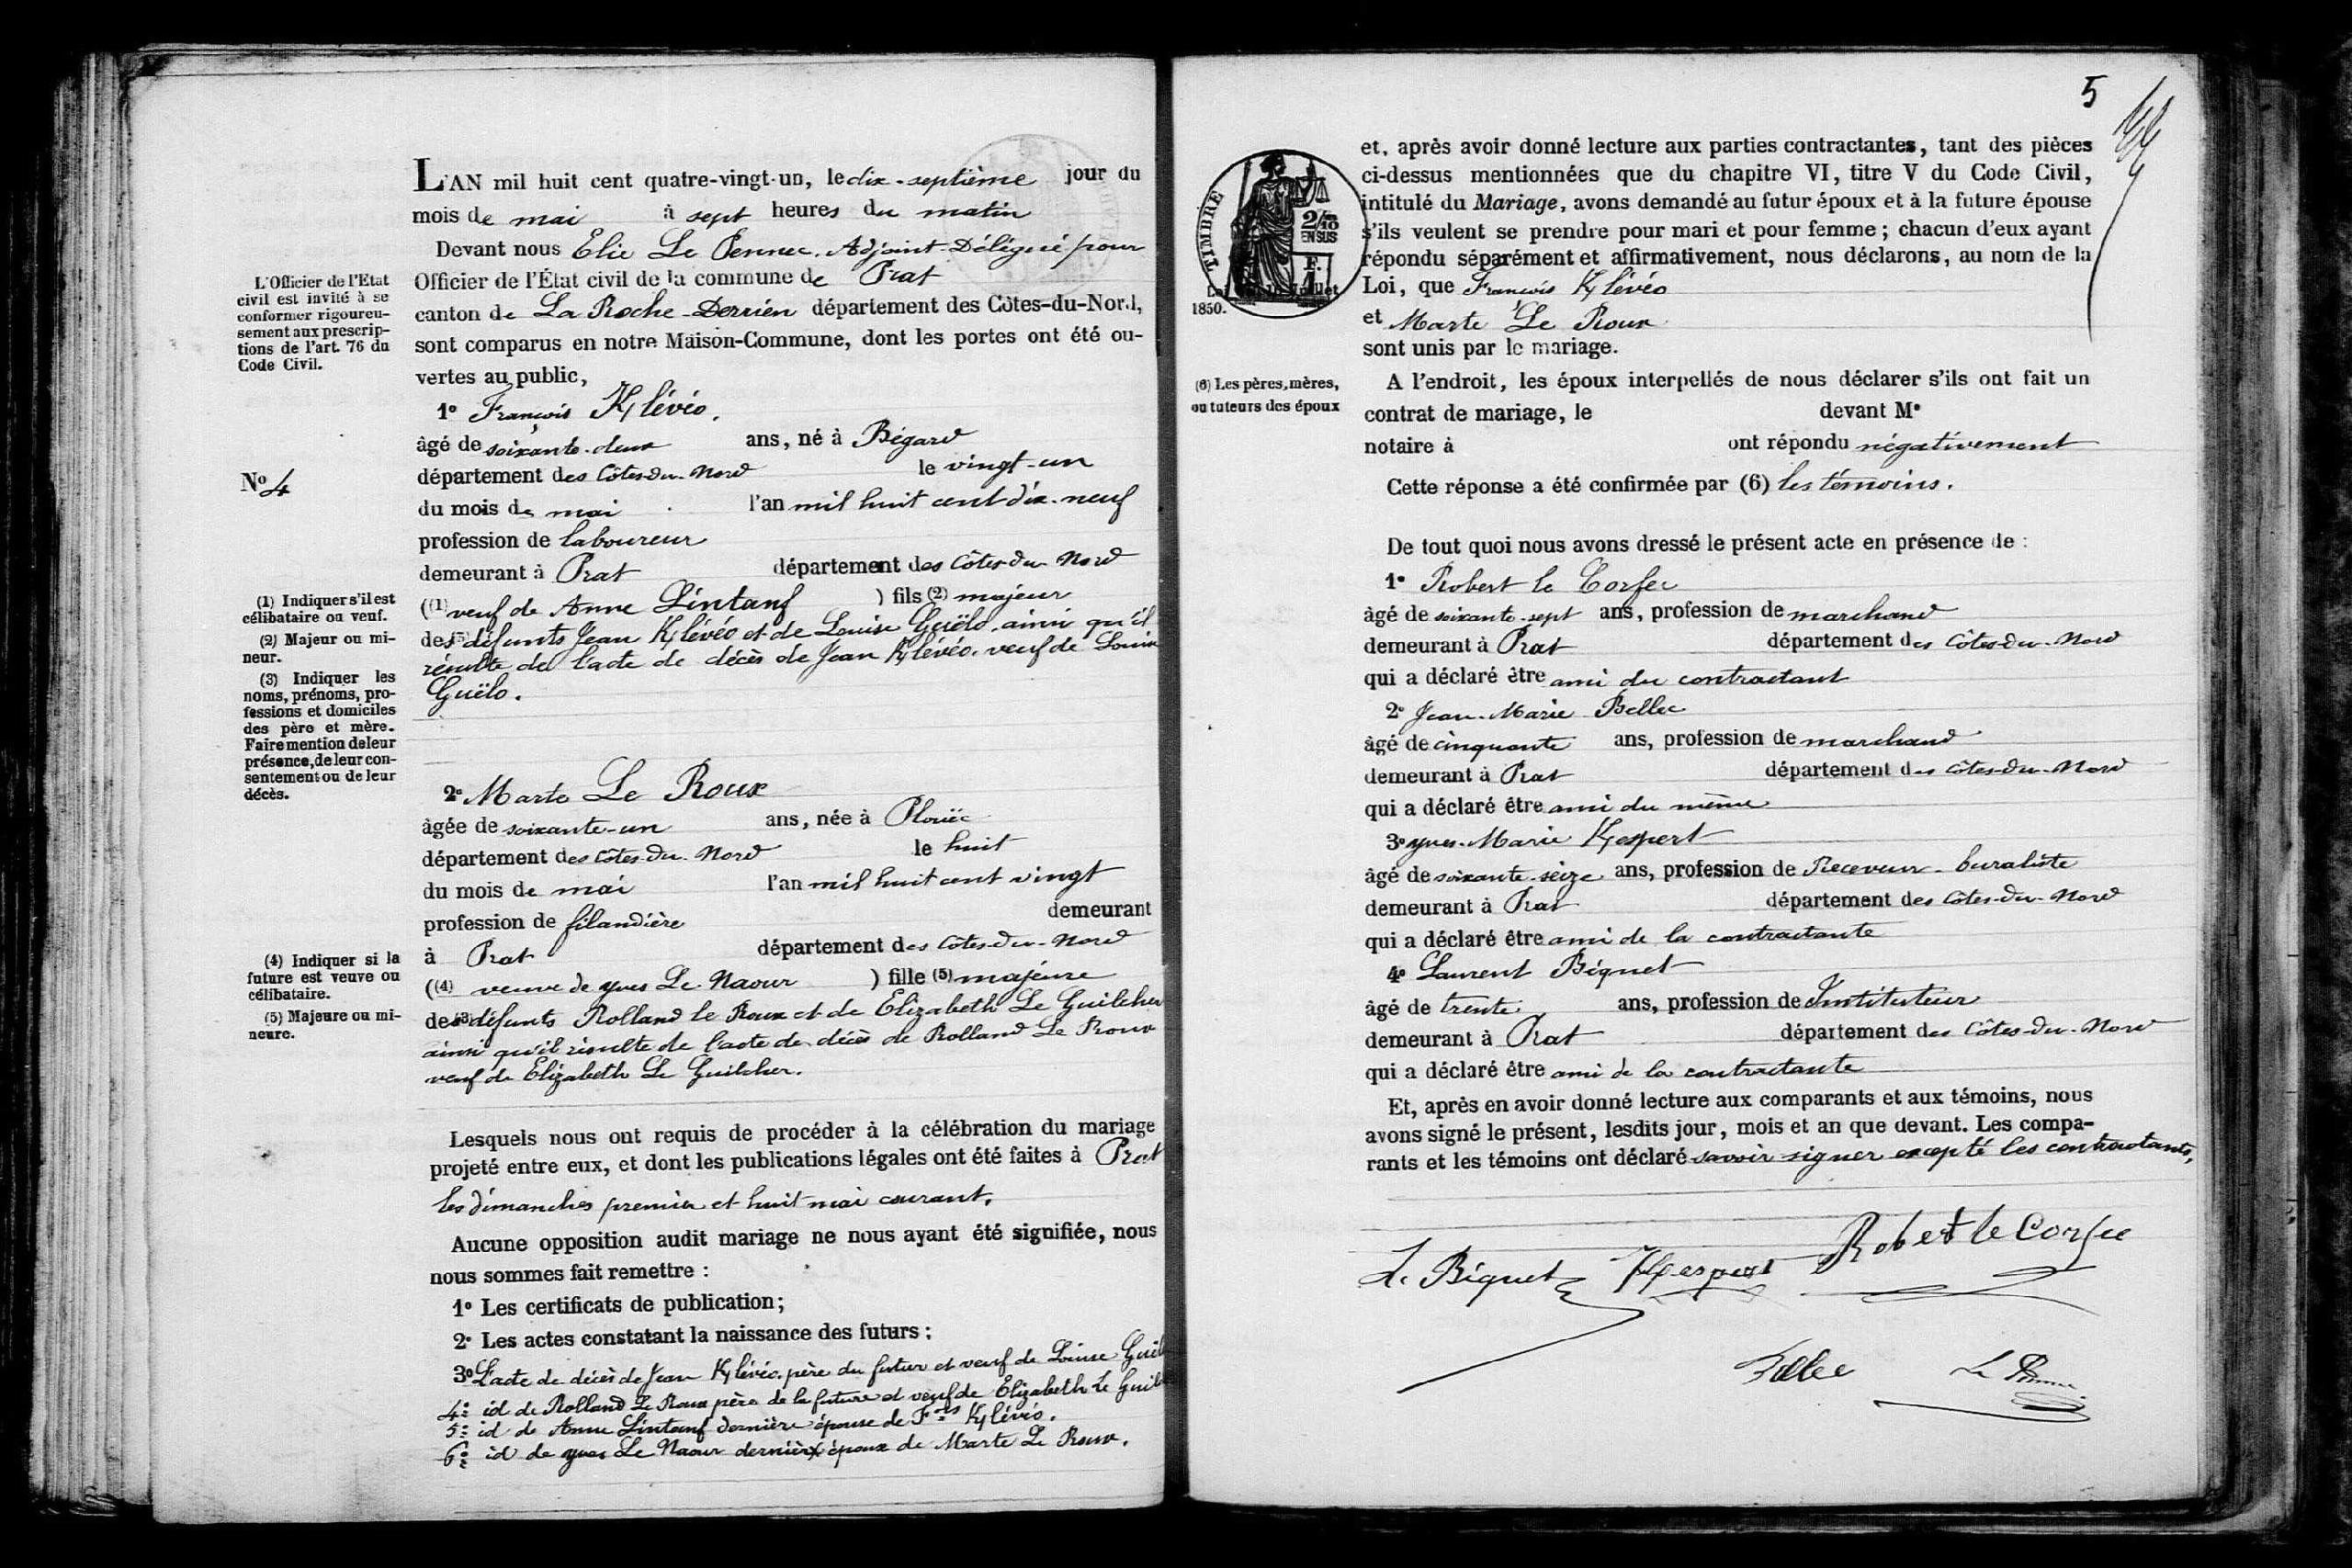 L'AN mil huit cent quatre-vingt-un, le dix-septième jour du
mois de mai à sept heures du matin
Devant nous Elie Le Pennec, Adjoint-Délégué pour
Officier de l'État civil de la commune de Prat
canton de La Roche-Derrien département des Côtes-du-Nord,
sont comparus en notre Maison-Commune, dont les portes ont été ou-
vertes au public,
L'Officier de l'Etat
civil est invité à se
conformer rigoureu-
sement aux prescrip-
tions de l'art. 76 du
Code Civil.
No 4
1º François Kylévéo.
âgé de soixante-deux ans, né à Bégard
département des Côtes-du-Nord le vingt-un
du mois de mai l'an mil huit cent dix-neuf
profession de laboureur
demeurant à Prat département des Côtes-du-Nord
((1) veuf de Anne Lintanf ) fils (2) majeur
des (3) défunts Jean Kylévéo et de Louise Guëlo, ainsi qu'il
résulte de l'acte de décès de Jean Kylévéo, veuf de Louise
Guëlo.
(1) Indiquer s'il est
célibataire ou veuf.
(2) Majeur ou mi-
neur.
(3) Indiquer les
noms, prénoms, pro-
fessions et domiciles
des père et mère.
Faire mention de leur
présence, de leur con-
sentement ou de leur
décès.
2º Marte Le Roux
âgée de soixante-un ans, née à Plouëc
département des Côtes-du-Nord le huit
du mois de mai l'an mil huit cent vingt
profession de filandière demeurant
à Prat département des Côtes-du-Nord
((4) veuve de yves Le Naour ) fille (5) majeure
des (3) défunts Rolland le Roux et de Elizabeth Le Guilcher
ainsi qu'il résulte de l'acte de décès de Rolland Le Roux
veuf de Elizabeth Le Guilcher.
(4) Indiquer si la
future est veuve ou
célibataire.
(5) Majeure ou mi-
neure.
Lesquels nous ont requis de procéder à la célébration du mariage
projeté entre eux, et dont les publications légales ont été faites à Prat
les dimanches premier et huit mai courant.
Aucune opposition audit mariage ne nous ayant été signifiée, nous
nous sommes fait remettre :
1º Les certificats de publication;
2º Les actes constatant la naissance des futurs;
3º L'acte de décès de Jean Kylévéo père du futur et veuf de Louise Guël
4º id de Rolland Le Roux père de la future et veuf de Elizabeth Le Guil
5º id de Anne Lintanf dernière épouse de Fois Kylévéo.
6º id de yves Le Naour dernier époux de Marte Le Roux.
5
TIMBRE
2/10
EN SUS
F.
Juillet
1850.
et, après avoir donné lecture aux parties contractantes, tant des pièces
ci-dessus mentionnées que du chapitre VI, titre V du Code Civil,
intitulé du Mariage, avons demandé au futur époux et à la future épouse
s'ils veulent se prendre pour mari et pour femme; chacun d'eux ayant
répondu séparément et affirmativement, nous déclarons, au nom de la
Loi, que François Kylévéo
et Marte Le Roux
sont unis par le mariage.
(6) Les pères, mères,
ou tuteurs des époux
A l'endroit, les époux interpellés de nous déclarer s'ils ont fait un
contrat de mariage, le devant Me
notaire à ont répondu négativement
Cette réponse a été confirmée par (6) les témoins.
De tout quoi nous avons dressé le présent acte en présence de :
1º Robert le Corfec
âgé de soixante-sept ans, profession de marchand
demeurant à Prat département des Côtes-du-Nord
qui a déclaré être ami du contractant
2º Jean-Marie Bellec
âgé de cinquante ans, profession de marchand
demeurant à Prat département des Côtes-du-Nord
qui a déclaré être ami du même
3º yves-Marie Kyespert
âgé de soixante-seize ans, profession de Receveur-buraliste
demeurant à Prat département des Côtes-du-Nord
qui a déclaré être ami de la contractante
4º Laurent Béguet
âgé de trente ans, profession de Instituteur
demeurant à Prat département des Côtes-du-Nord
qui a déclaré être ami de la contractante
Et, après en avoir donné lecture aux comparants et aux témoins, nous
avons signé le présent, lesdits jour, mois et an que devant. Les compa-
rants et les témoins ont déclaré savoir signer excepté les contractants.
L. Béguet Kyespert Robert le Corfec
Bellec Le Pennec